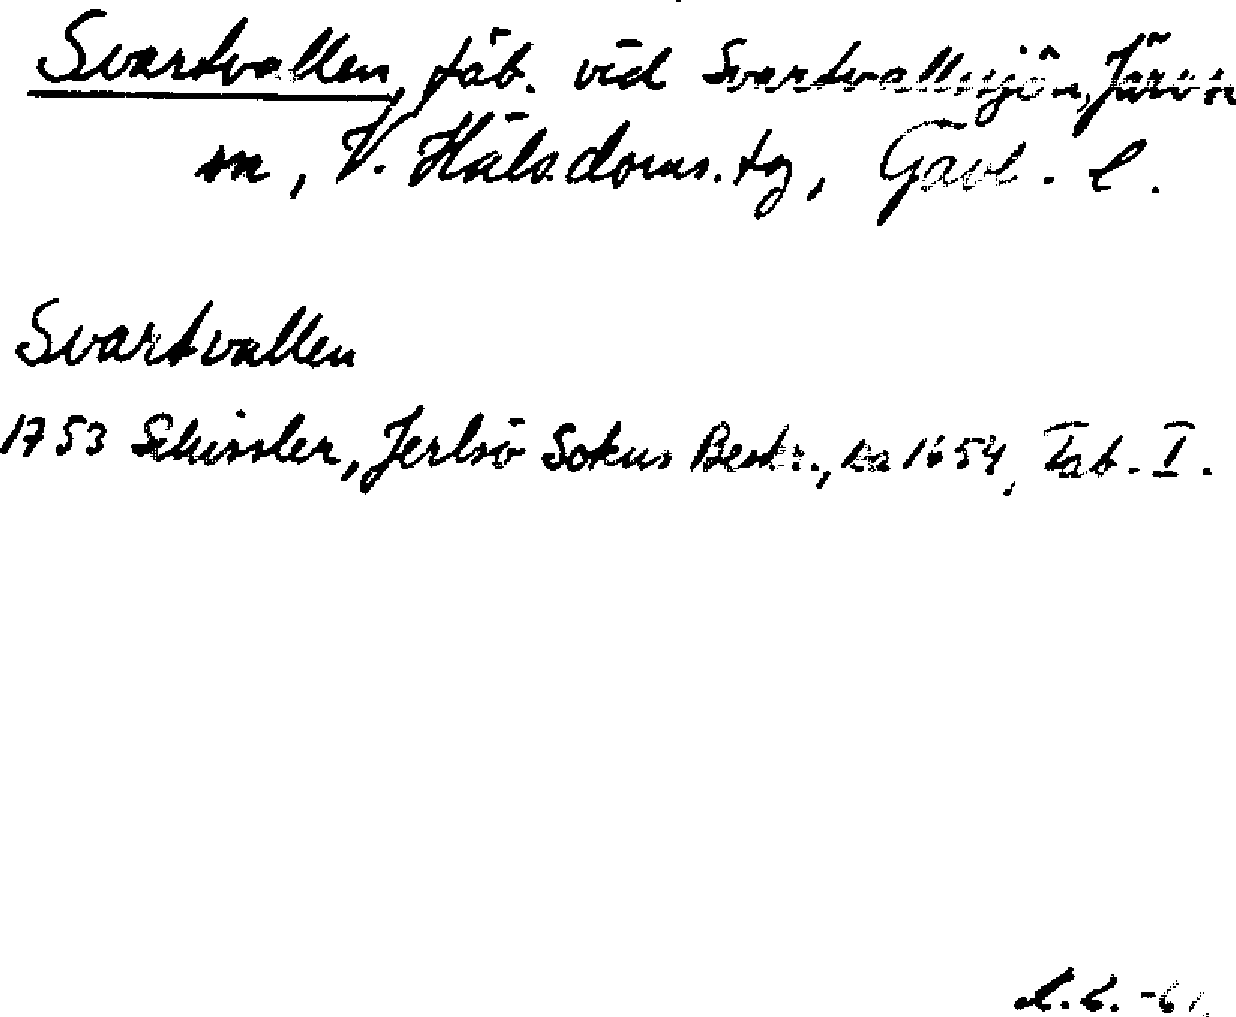 Svartvallen, fäb. vid Svartvallsjön, Järvsö
sn, V. Häls.doms.tg, Gävl. l.
Svartvallen
1753 Schissler, Jerlsö Sokns Beskr., ka 1654, Tab. I.